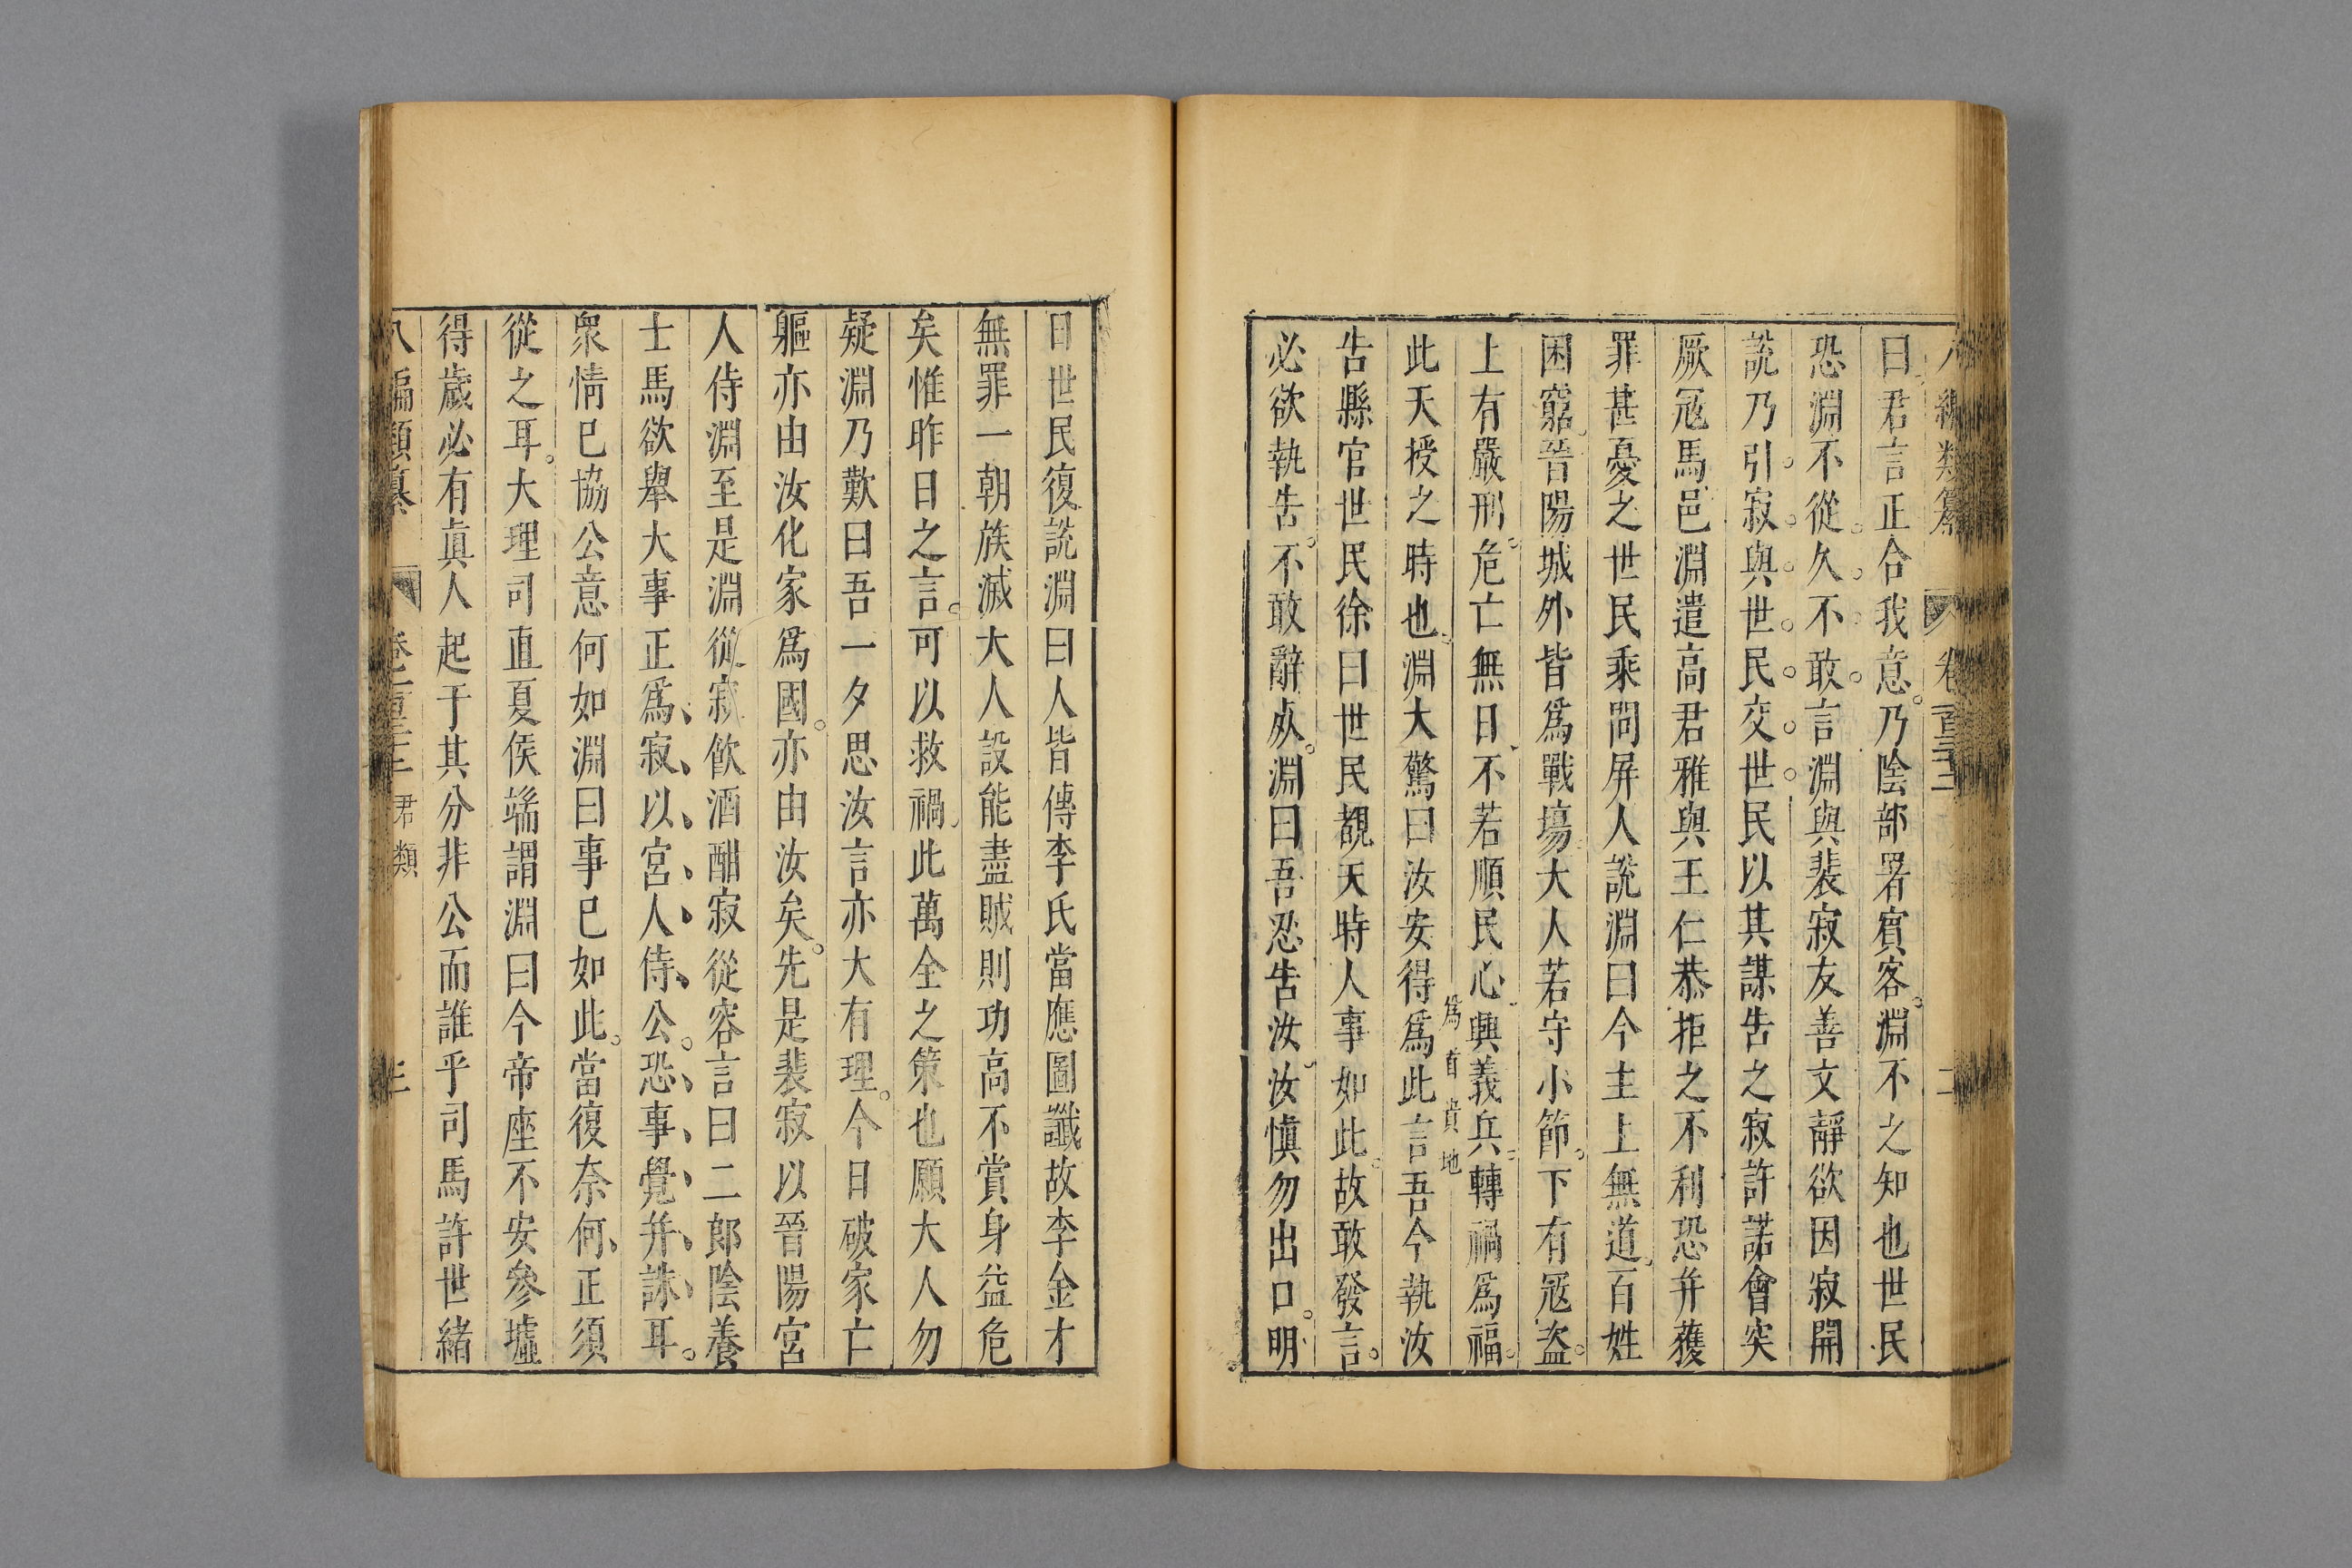 八編類纂 卷一百二十二 二
曰君言正合我意乃陰部署賓客淵不之知也世民
恐淵不從久不敢言淵與裴寂友善文靜欲因寂開
說乃引寂與世民交世民以其謀告之寂許諾會突
厥冦馬邑淵遣高君雅與王仁恭拒之不利恐并獲
罪甚憂之世民乘間屏人說淵曰今主上無道百姓
困窮晉陽城外皆爲戰塲大人若守小節下有冦盗
上有嚴刑危亡無日不若順民心興義兵轉禍爲福
爲首貴地
此天授之時也淵大驚曰汝安得爲此言吾今執汝
告縣官世民徐曰世民覩天時人事如此故敢發言
必欲執告不敢辭𣦸淵曰吾忍告汝汝慎勿出口明
日世民復說淵曰人皆傳李氏當應圖讖故李金才
無罪一朝族滅大人設能盡賊則功高不賞身益危
矣惟昨日之言可以救禍此萬全之策也願大人勿
疑淵乃歎曰吾一夕思汝言亦大有理今日破家亡
軀亦由汝化家爲國亦由汝矣先是裴寂以晉陽宮
人侍淵至是淵從寂飲酒酣寂從容言曰二郎陰養
士馬欲舉大事正爲寂以宮人侍公恐事覺并誅耳
衆情已協公意何如淵曰事已如此當復奈何正須
從之耳大理司直夏侯端謂淵曰今帝座不安參墟
得歲必有眞人起于其分非公而誰乎司馬許世緒
八編類纂 君類 三